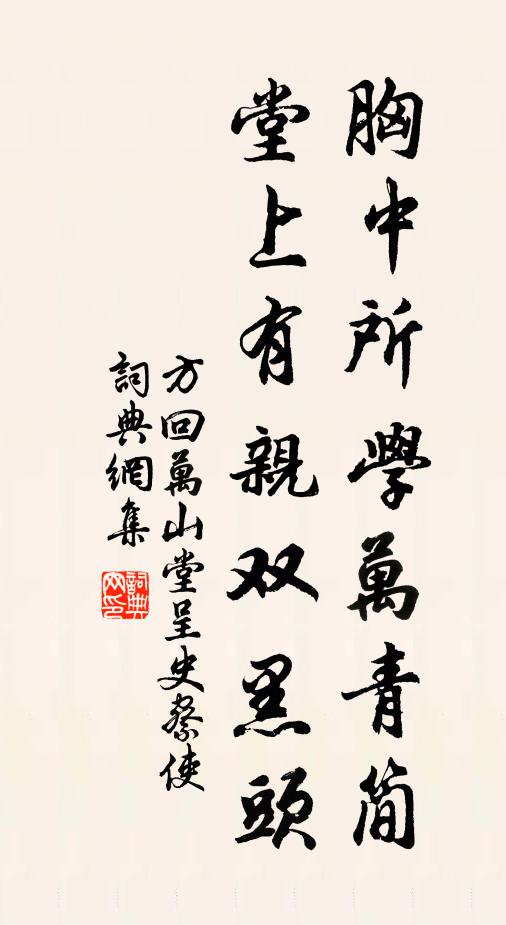 胸中所學萬青簡
堂上有親双黑頭
方回萬山堂呈史祭使
詞典網集
詞典网印